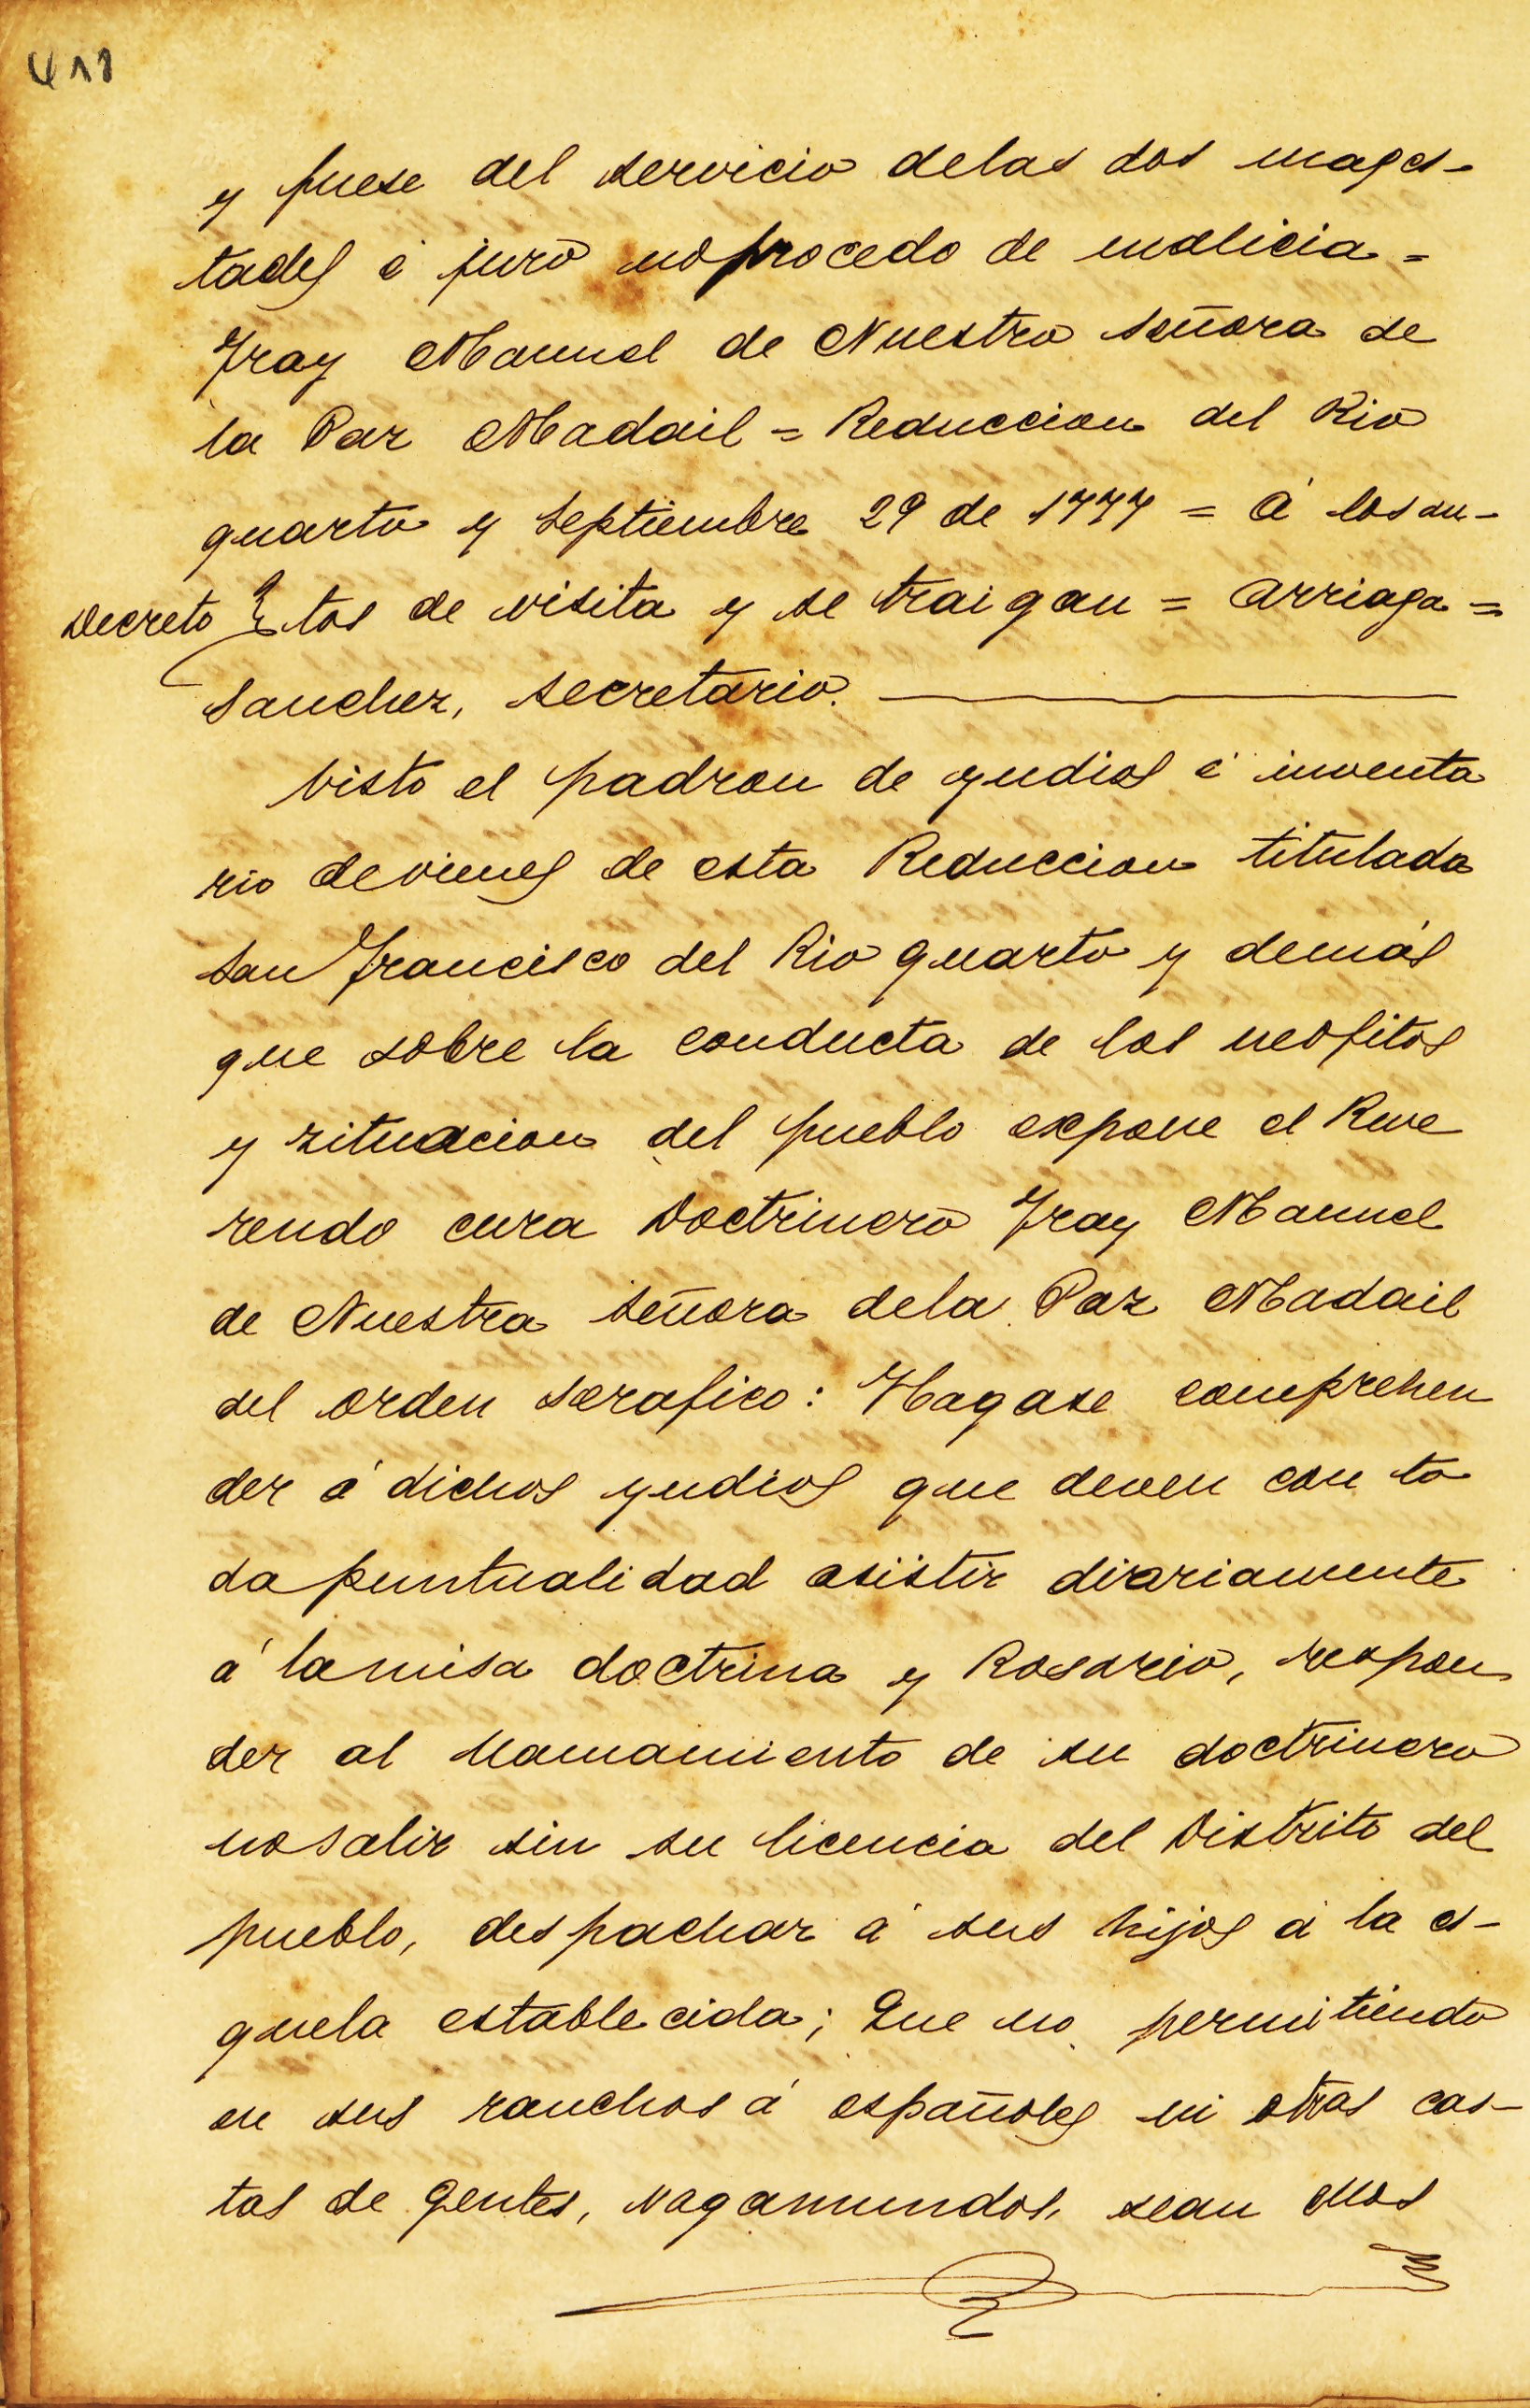 411
y fuese del servicio delas dos mages-
tades é juro noprocedo de malicia =
Fray Manuel de Nuestra Señora de
la Paz Madail = Reduccion del Rio
quarto y Septiembre 29 de 1777 = Á los au-
Decreto } tos de visita y se traigan = Arriaga =
Sanchez, secretario.
Visto el padron de yndios é inventa
rio devienes de esta Reduccion titulada
San Francisco del Rio quarto y demás
que sobre la conducta de los neofitos
y situacion del pueblo expone el Reve
rendo cura Doctrinero Fray Manuel
de Nuestra Señora dela Paz Madail
del orden serafico: Hagase comprehen
der á dichos yndios que deven con to
da puntualidad asistir diariamente
á la misa doctrina y Rosario, respon
der al llamamiento de su doctrinero
no salir sin su licencia del Distrito del
pueblo, despachar á sus hijos á la es-
quela establecida; Que no permitiendo
en sus ranchos á españoles ni otras cas-
tas de gentes, vagamundos, sean ellos